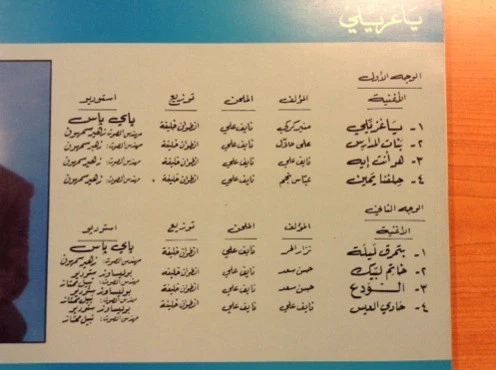 يا غزيّلي
الوجه الأول
الأغنية المؤلف الملحن توزيع استوديو
١- يا غزيّلي منير كريكي نايف علي انطوان خليفة باي باس
مهندس الصوت: زهير سمهون
٢- بنات المدارس علي نايف علي انطوان خليفة مهندس الصوت: زهير سمهون
٣- هوانت إيه نايف علي نايف علي انطوان خليفة مهندس الصوت: زهير سمهون
٤- حلفنا يمين عباس نجم نايف علي انطوان خليفة مهندس الصوت: زهير سمهون
الوجه الثاني
الأغنية المؤلف الملحن توزيع استوديو
١- بتمرق ليلة نزار الحر نايف علي انطوان خليفة باي باس
مهندس الصوت: زهير سمهون
٢- خاتم لبيّك حسن سعد نايف علي انطوان خليفة بوليساوند ستوديو
مهندس الصوت: نبيل ممتاز
٣- الـودع حسن سعد نايف علي انطوان خليفة بوليساوند ستوديو
مهندس الصوت: نبيل ممتاز
٤- حادي العيس نايف علي نايف علي انطوان خليفة بوليساوند ستوديو
مهندس الصوت: نبيل ممتاز